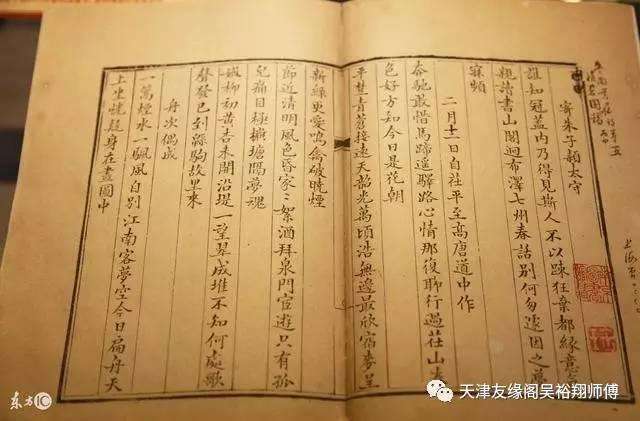 寄朱子穎太守
誰知冠蓋內乃得見斯人不以踈狂棄都緣意
親詩書山閣迥布澤七州春話別何匆遽因之
寐頻
二月十二日自茌平至高唐道中作
奔馳敢惜馬蹄遥驛路心情那復聊行過茌山春
色好方知今日是花朝
平楚青蒼接遠天韶光萬頃浩無邊最欣宿麥呈
新綠更愛鳴禽破曉煙
節近清明風色昏家〻絮酒拜泉門宦遊只有孤
兒痛目極橫塘隔夢魂
柳初黃杏未開沿堤一望翠成堆不知何處歌
聲發已到緜駒故里來
舟次偶成
一篙煙水一颿風自別江南客夢空今日扁舟天
上坐恍疑身在畫圖中
东方IC
天津友缘阁吴裕翔师傅